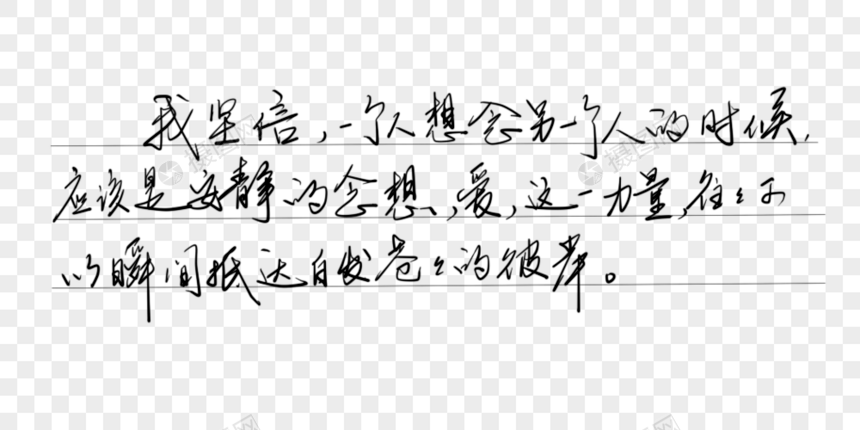 我坚信，一个人想念另一个人的时候，
应该是安静的念想，爱，这一力量，往々可
以瞬间抵达白发苍々的彼岸。